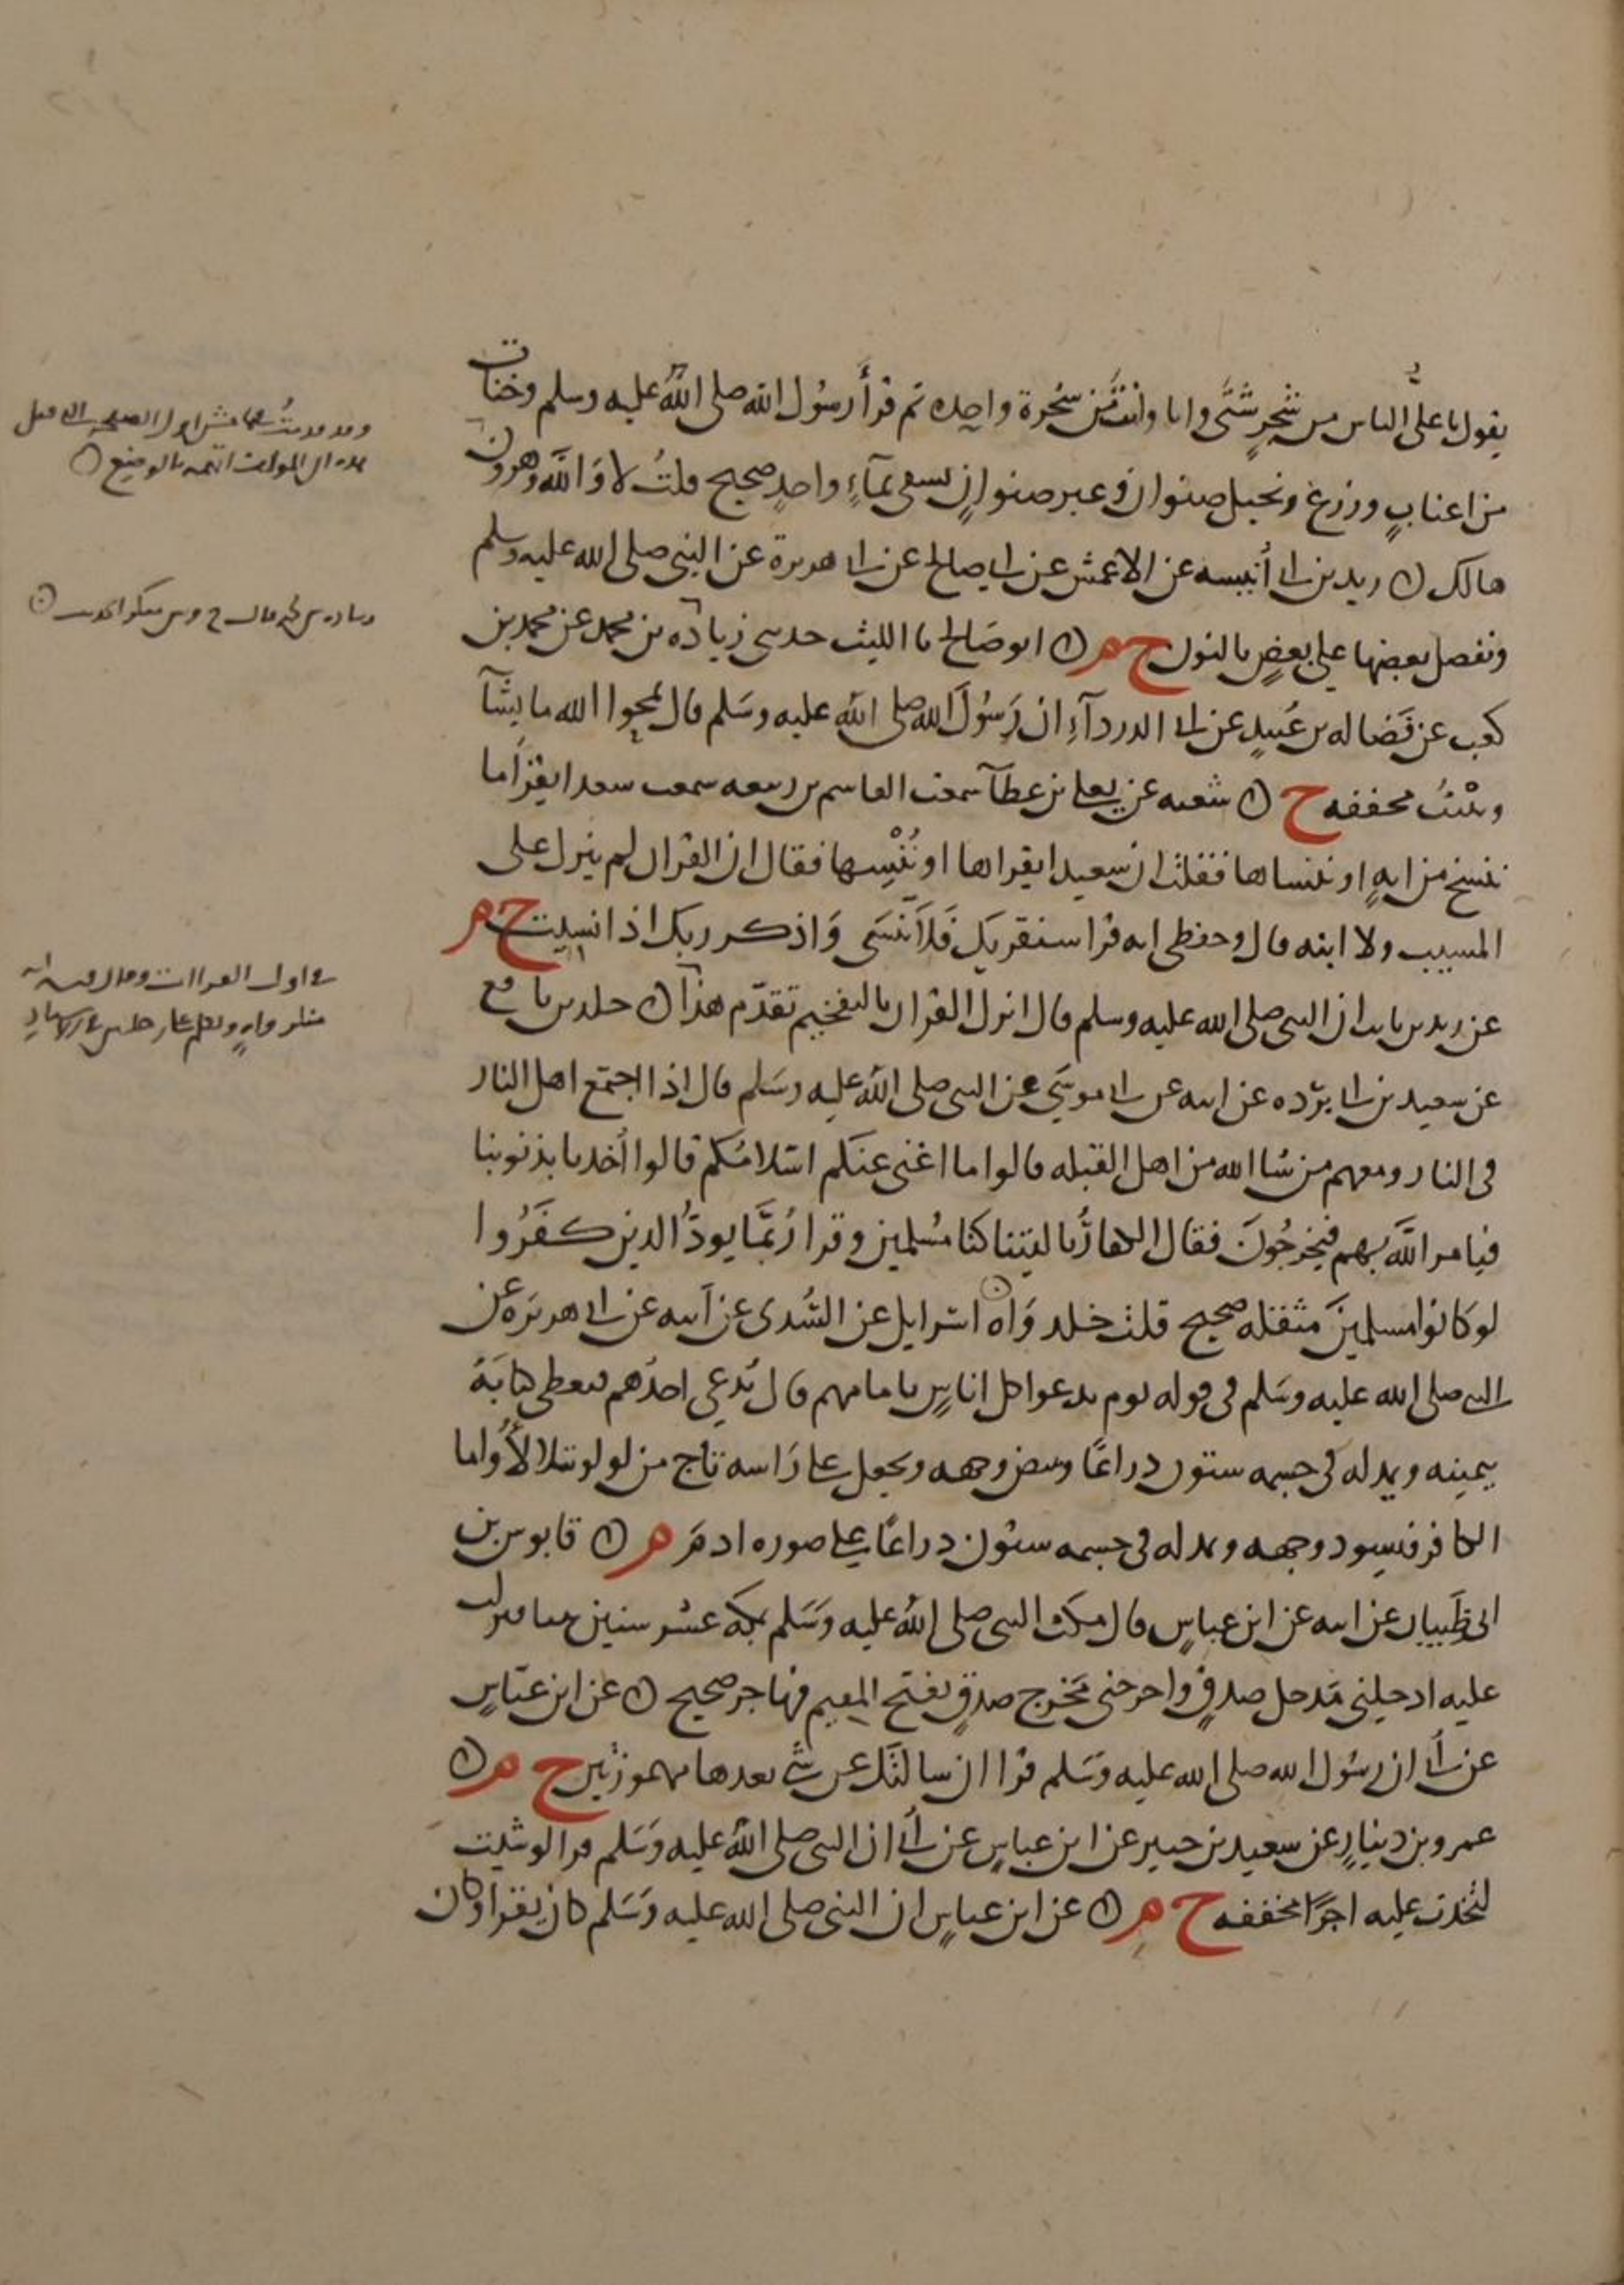 يقول يا علي الناس من شجرٍ شتَّى وانا وانت من شجرة واحده ثم قرأ رسُول الله صلى اللهُ عليه وسلم وجنات
من اعنابٍ وزرع ونخيل صنوان وغير صنوانٍ تسقى بمآءٍ واحدٍ صحيح قلتُ لا وَاللَّهِ وهرون
هالك ○ زيد بن ابى أُنيسه عن الاعمش عن ابى صالح عن ابى هريرة عن النبى صلى الله عليه وسلم
ونفضل بعضها على بعضٍ بالنون ح م ○ ابو صَالح نا الليث حدثنى زيادَه بن محمد عن محمد بن
كعب عن فَضاله بن عُبيدٍ عن ابى الدردآءِ ان رَسُولَ الله صلى الله عليه وسَلم قال يمحوا الله ما يشآ
ويثبت مخففه ح ○ شعبه عن يعلى بن عطآ سمعت القاسم بن ربيعه سمعت سعدا يقرأ ما
ننسخ من ايهٍ او ننساها فقلت ان سعيدا يقراها او نُنْسِها فقال ان القران لم ينزل على
المسيب ولا ابنه قال وحفظى انه قرا سنقريك فَلَا تَنسَى وَاذكر ربك اذا نسيت ح م
عن زيد بن ثابت ان النبى صلى الله عليه وسلم قال انزل القران بالتفخيم تقدّم هذا ○ خلد بن نافع
عن سعيد بن ابى بُرده عن ابيه عن ابى موسَى عن النبى صلى اللهُ عليه وسَلم قال اذا اجتمع اهل النار
فى النار ومعهم من شا الله من اهل القبله قالوا ما اغنى عنكم اسْلامُكم قالوا أُخذنا بذنوبنا
فيامر اللَّهُ بهم فيُخرجُونَ فقال الكفارُ يا ليتنا كنا مُسْلمين وقرا رُبَّمَا يودُّ الذين كَفَرُوا
لو كانوا مسلمينَ مثقله صحيح قلت خلد وَاه ○ اسرايل عن السُّدى عن ابيه عن ابى هريرَه عن
النبى صلى الله عليه وسَلم فى قوله يوم ندعوا كل اناسٍ بامامهم قال يُدعى احدُهم فيعطى كتابَهُ
بيمينه ويمد له فى جسمه ستون ذراعًا ويبيض وجهه ويجعل على رَاسه تاج من لولو يتلالأُ واما
الكافر فيسود وجهه ويمد له فى جسمه ستون ذراعًا على صوره ادمَ م ○ قابوس بن
ابى ظَبيان عن ابيه عن ابن عباسٍ قال مكث النبى صلى اللهُ عليه وَسَلم بمكه عشر سنين نبيا فنزلت
عليه ادخلنى مَدخل صدقٍ واخرجنى مَخْرج صدقٍ بفتح الميم فهاجر صحيح ○ عن ابن عبّاسٍ
عن أُبى ان رسُول الله صلى الله عليه وسَلم قرا ان سالتك عن شئ بعدها مهموزتين ح م ○
عمرو بن دينارٍ عن سعيد بن جبير عن ابن عباسٍ عن أُبى ان النبى صلى اللهُ عليه وَسَلم قرا لو شيت
لتَخذت عليه اجرًا مخففه ح م ○ عن ابن عباسٍ ان النبى صلى الله عليه وَسَلم كان يقرا وكان